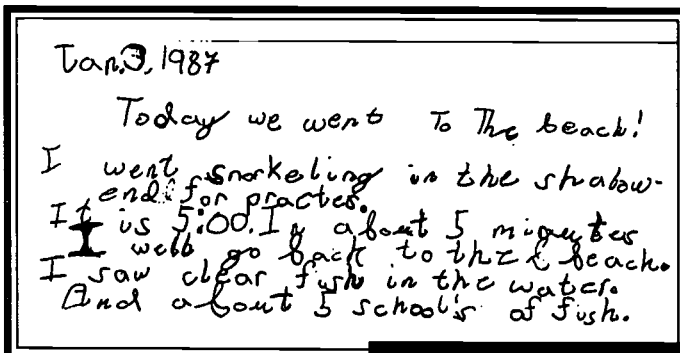 Jan. 3, 1987
Today we went To The beach!
I went snorkeling in the shalow-
end for practes.
It is 5:00. In about 5 minutes
I well go back to the beach.
I saw clear fish in the water.
And about 5 school's of fish.